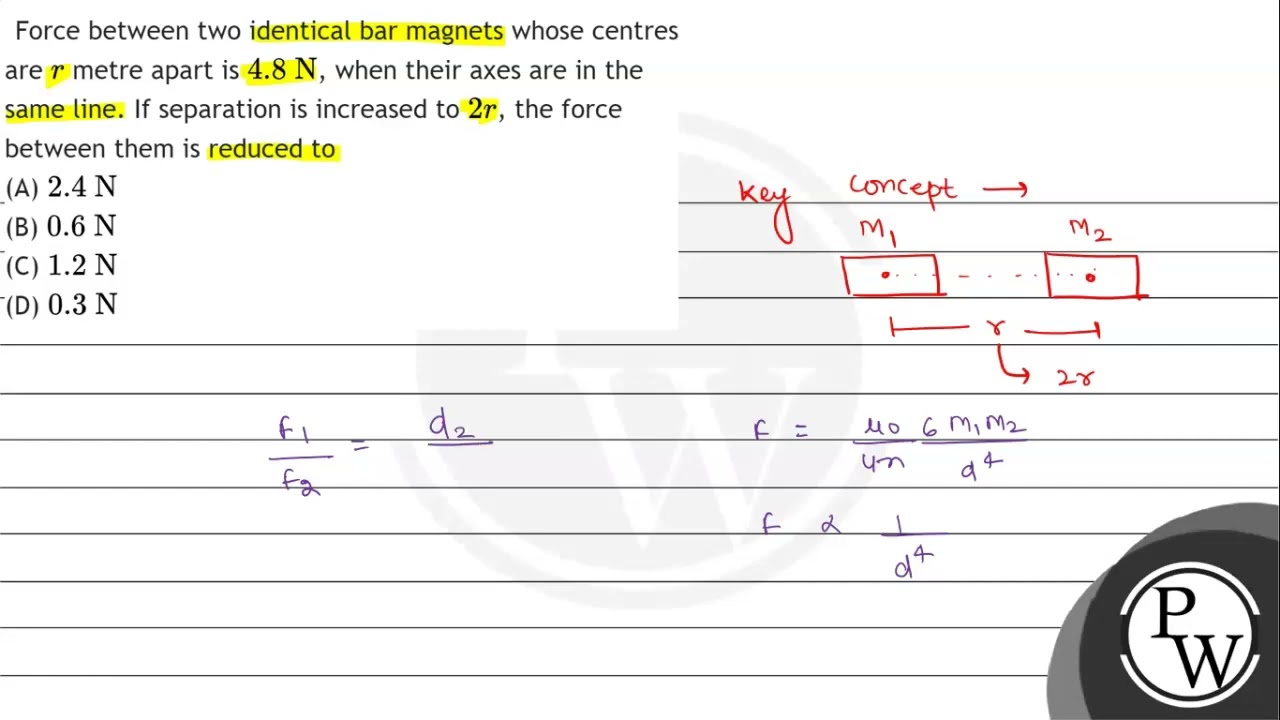 Force between two identical bar magnets whose centres
are r metre apart is 4.8 N, when their axes are in the
same line. If separation is increased to 2r, the force
between them is reduced to
(A) 2.4 N
(B) 0.6 N
(C) 1.2 N
(D) 0.3 N
Key concept →
M1 M2
r
2r
F1/F2 = d2
F = μ0/4π 6 M1M2/d^4
F ∝ 1/d^4
P
W